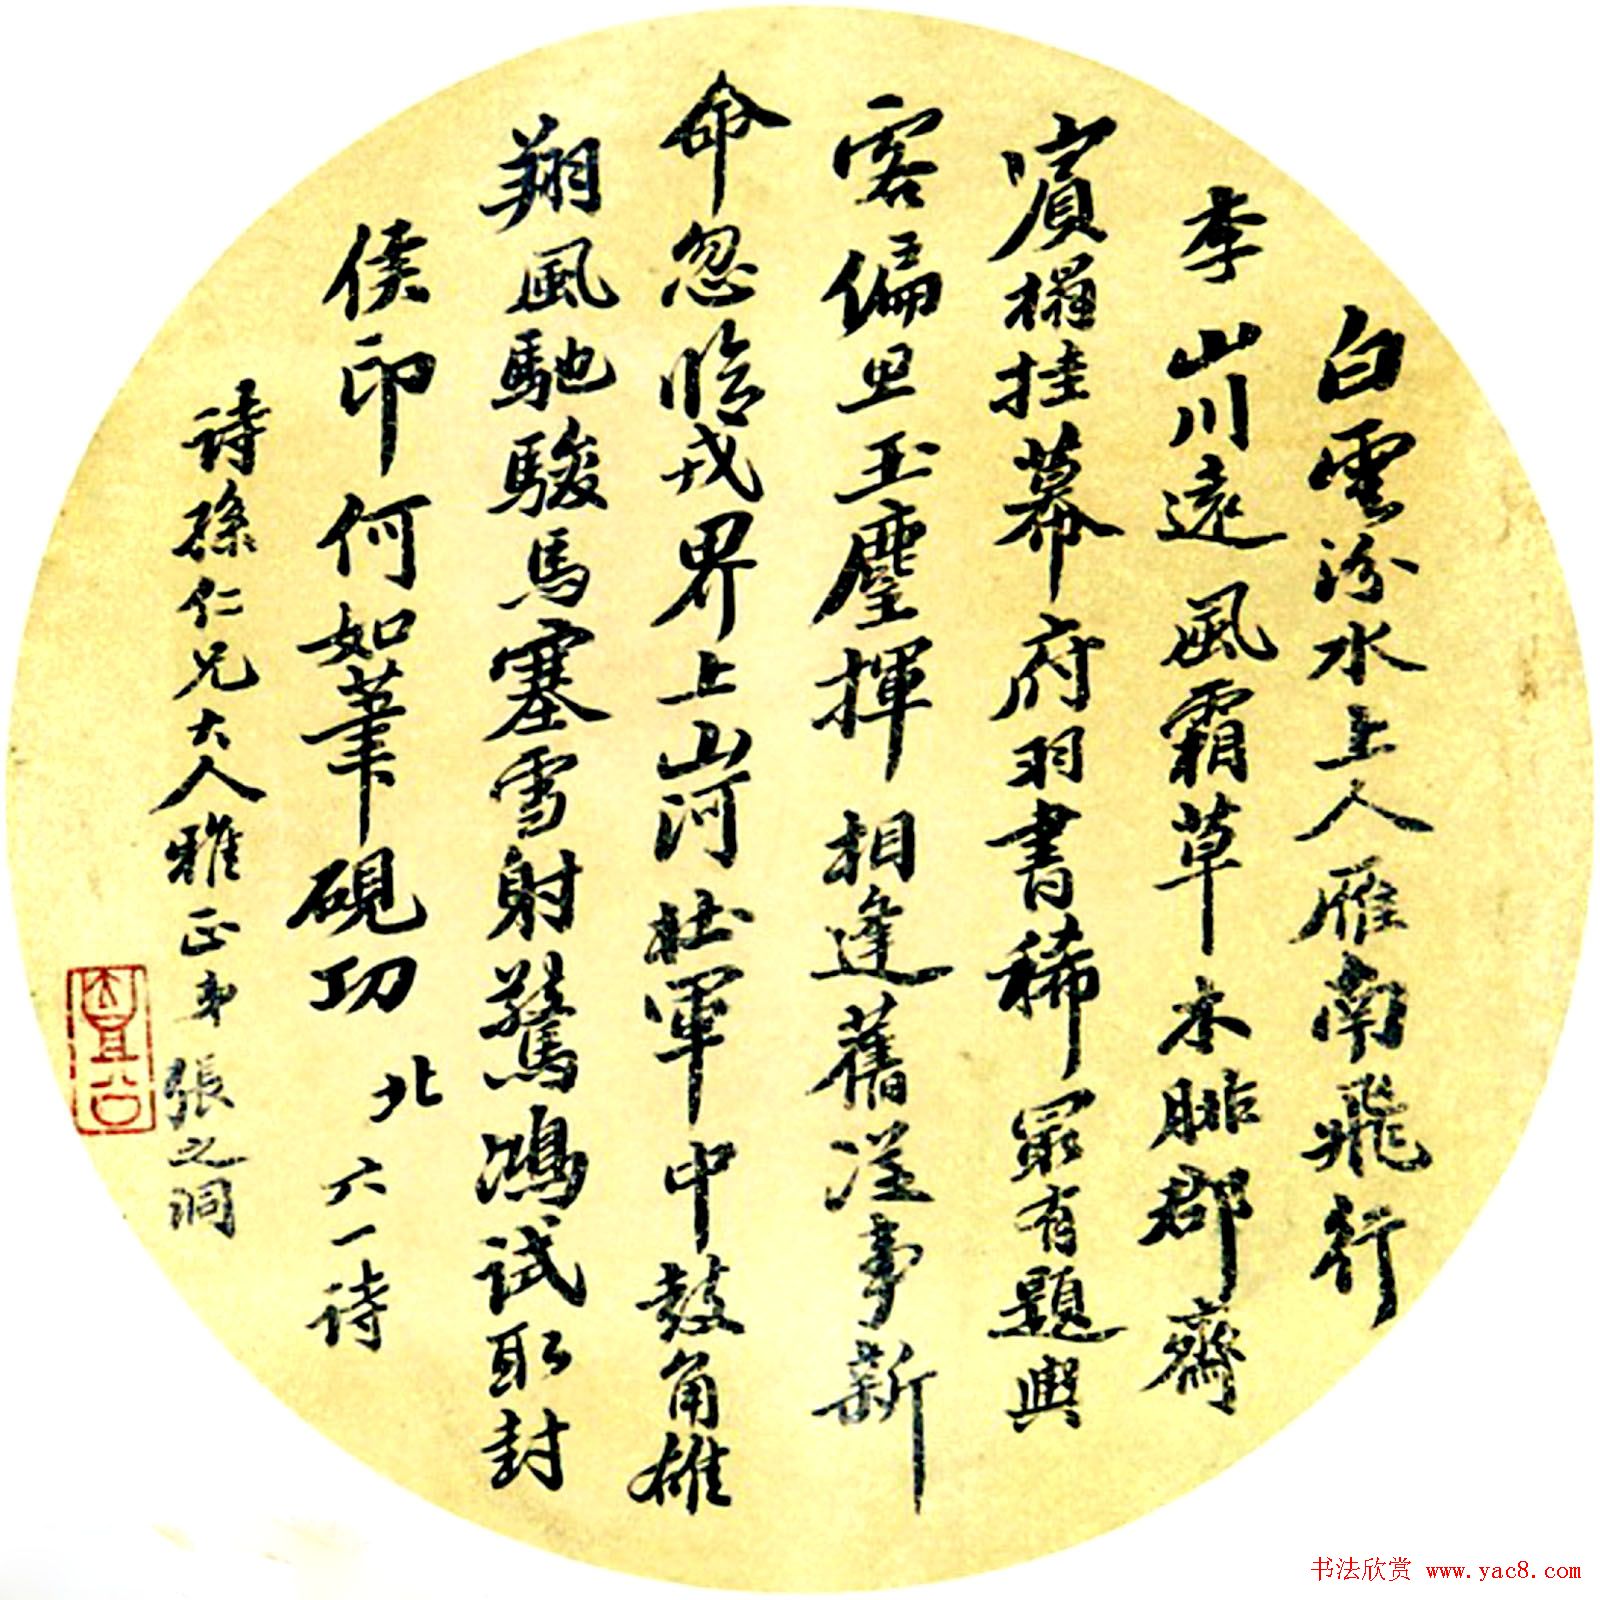 白雲汾水上人雁南飛行
李山川遠風霜草木腓郡齋
賓榻挂幕府羽書稀最有題輿
客偏思玉麈揮相逢舊從事新
命忽臨戎界上山河壯軍中鼓角雄
翔風馳駿馬塞雪射驚鴻試取封
侯印何如筆硯功 北 六一詩
詩孫仁兄大人雅正弟張之洞
壺公
书法欣赏 www.yac8.com